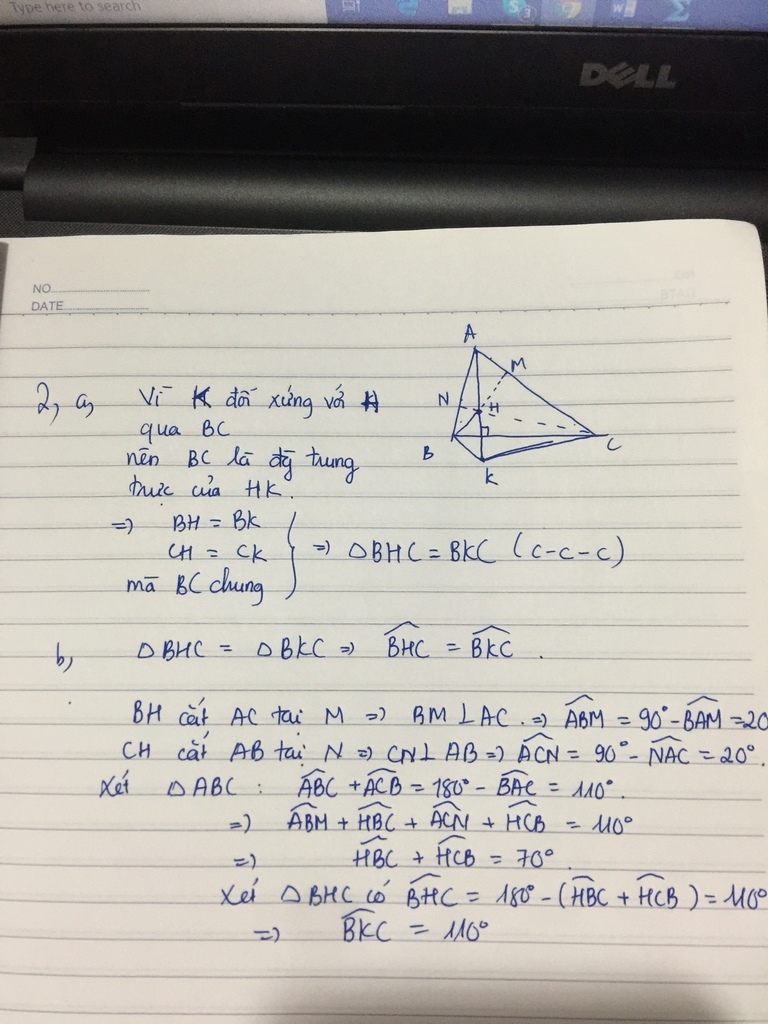 Type here to search
DELL
NO
DATE
A
M
N
H
B
C
K
2, a, Vì K đối xứng với H
qua BC
nên BC là đg trung
trực của HK.
=> BH = BK
CH = CK => △BHC = BKC (c-c-c)
mà BC chung
b, △BHC = △BKC => BHC = BKC.
BH cắt AC tại M => BM ⊥ AC. => ABM = 90° - BAM = 20
CH cắt AB tại N => CN ⊥ AB => ACN = 90° - NAC = 20°.
Xét △ABC : ABC + ACB = 180° - BAC = 110°.
=> ABM + HBC + ACN + HCB = 110°
=> HBC + HCB = 70°.
Xét △BHC có BHC = 180° - (HBC + HCB) = 110°
=> BKC = 110°